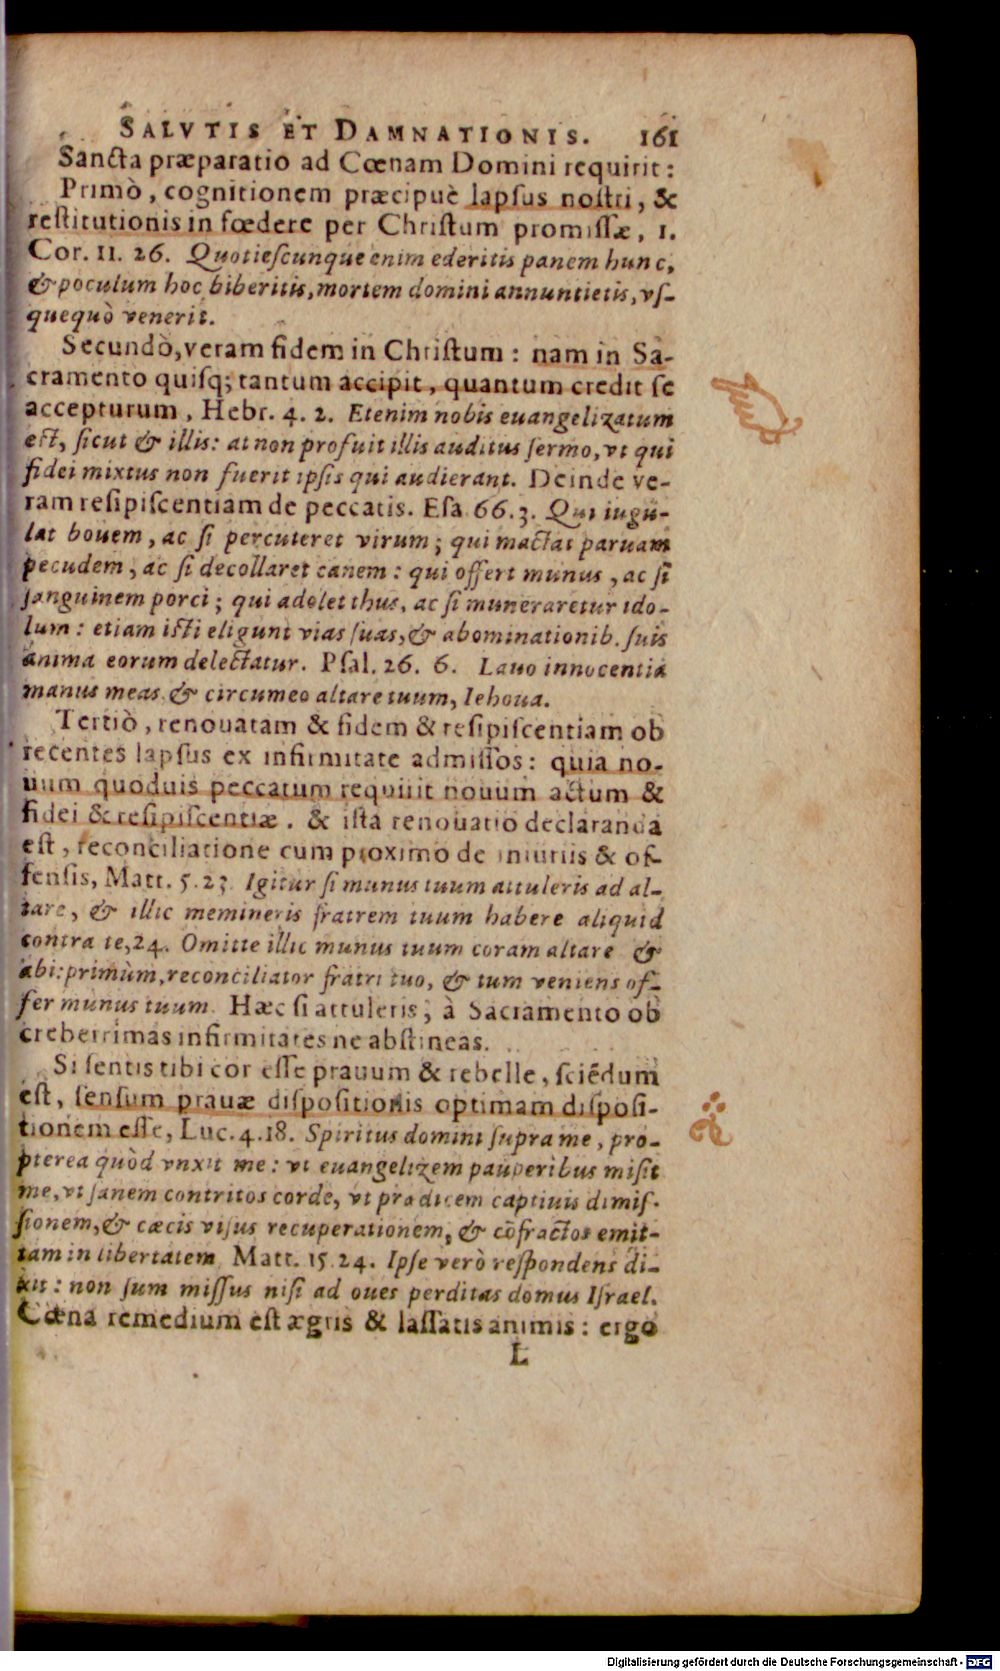 SALVTIS ET DAMNATIONIS. 161
Sancta præparatio ad Cœnam Domini requirit:
Primò, cognitionem præcipuè lapsus nostri, &
restitutionis in fœdere per Christum promissæ, 1.
Cor. 11. 26. Quotiescunque enim ederitis panem hunc,
& poculum hoc biberitis, mortem domini annuntietis, vs-
quequò venerit.
Secundò, veram fidem in Christum: nam in Sa-
cramento quisq; tantum accipit, quantum credit se
accepturum, Hebr. 4. 2. Etenim nobis euangelizatum
est, sicut & illis: at non profuit illis auditus sermo, vt qui
fidei mixtus non fuerit ipsis qui audierant. Deinde ve-
ram resipiscentiam de peccatis. Esa 66. 3. Qui iugu-
lat bouem, ac si percuteret virum; qui mactat paruam
pecudem, ac si decollaret canem: qui offert munus, ac si
sanguinem porci; qui adolet thus, ac si muneraretur ido-
lum: etiam isti eligunt vias suas, & abominationib. suis
anima eorum delectatur. Psal. 26. 6. Lauo innocentia
manus meas & circumeo altare tuum, Iehoua.
Tertiò, renouatam & fidem & resipiscentiam ob
recentes lapsus ex infirmitate admissos: quia no-
uum quoduis peccatum requirit nouum actum &
fidei & resipiscentiæ. & ista renouatio declaranda
est, reconciliatione cum proximo de iniuriis & of-
fensis, Matt. 5. 23 Igitur si munus tuum attuleris ad al-
tare, & illic memineris fratrem tuum habere aliquid
contra te, 24. Omitte illic munus tuum coram altare &
abi: primùm, reconciliator fratri tuo, & tum veniens of-
fer munus tuum. Hæc si attuleris, à Sacramento ob
creberrimas infirmitates ne abstineas.
Si sentis tibi cor esse prauum & rebelle, sciēdum
est, sensum prauæ dispositionis optimam disposi-
tionem esse, Luc. 4. 18. Spiritus domini supra me, pro-
pterea quòd vnxit me: vt euangelizem pauperibus misit
me, vt sanem contritos corde, vt prædicem captiuis dimis-
sionem, & cæcis visus recuperationem, & cōfractos emit-
tam in libertatem Matt. 15. 24. Ipse verò respondens di-
xit: non sum missus nisi ad oues perditas domus Israel.
Cœna remedium est ægris & lassatis animis: ergo
L
Digitalisierung gefördert durch die Deutsche Forschungsgemeinschaft - DFG